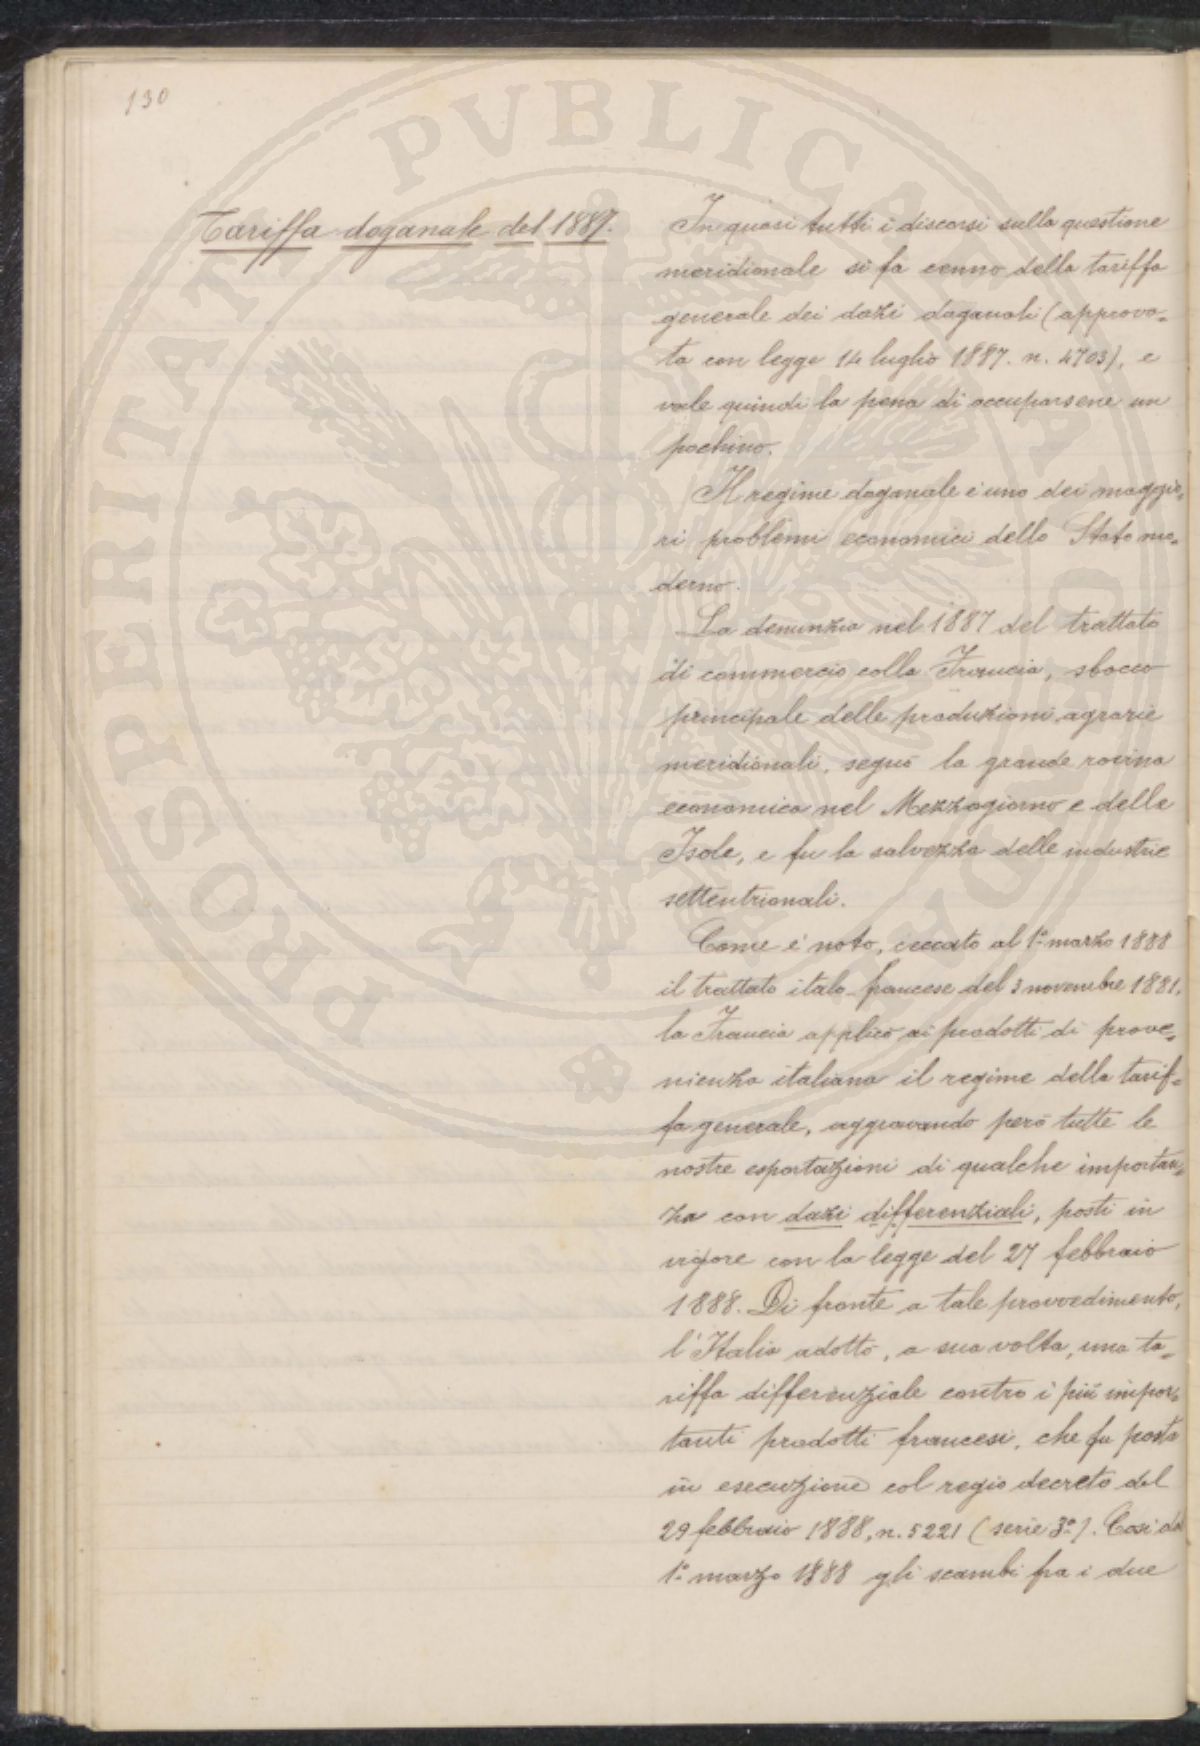 130
Tariffa doganale del 1887.
In quasi tutti i discorsi sulla questione
meridionale si fa cenno della tariffa
generale dei dazi doganali (approva=
ta con legge 14 luglio 1887. n. 4703), e
vale quindi la pena di occuparsene un
pochino.
Il regime doganale è uno dei maggio=
ri problemi economici dello Stato mo=
derno.
La denunzia nel 1887 del trattato
di commercio colla Francia, sbocco
principale delle produzioni agrarie
meridionali, segnò la grande rovina
economica nel Mezzogiorno e delle
Isole, e fu la salvezza delle industrie
settentrionali.
Come è noto, cessato al 1º marzo 1888
il trattato italo-francese del 3 novembre 1881,
la Francia applicò ai prodotti di prove=
nienza italiana il regime della tarif=
fa generale, aggravando però tutte le
nostre esportazioni di qualche importan=
za con dazi differenziali, posti in
vigore con la legge del 27 febbraio
1888. Di fronte a tale provvedimento,
l'Italia adottò, a sua volta, una ta=
riffa differenziale contro i più impor=
tanti prodotti francesi, che fu posta
in esecuzione col regio decreto del
29 febbraio 1888, n. 5221 (serie 3ª). Così dal
1º marzo 1888 gli scambi fra i due
PROSPERITATE PVBLICA